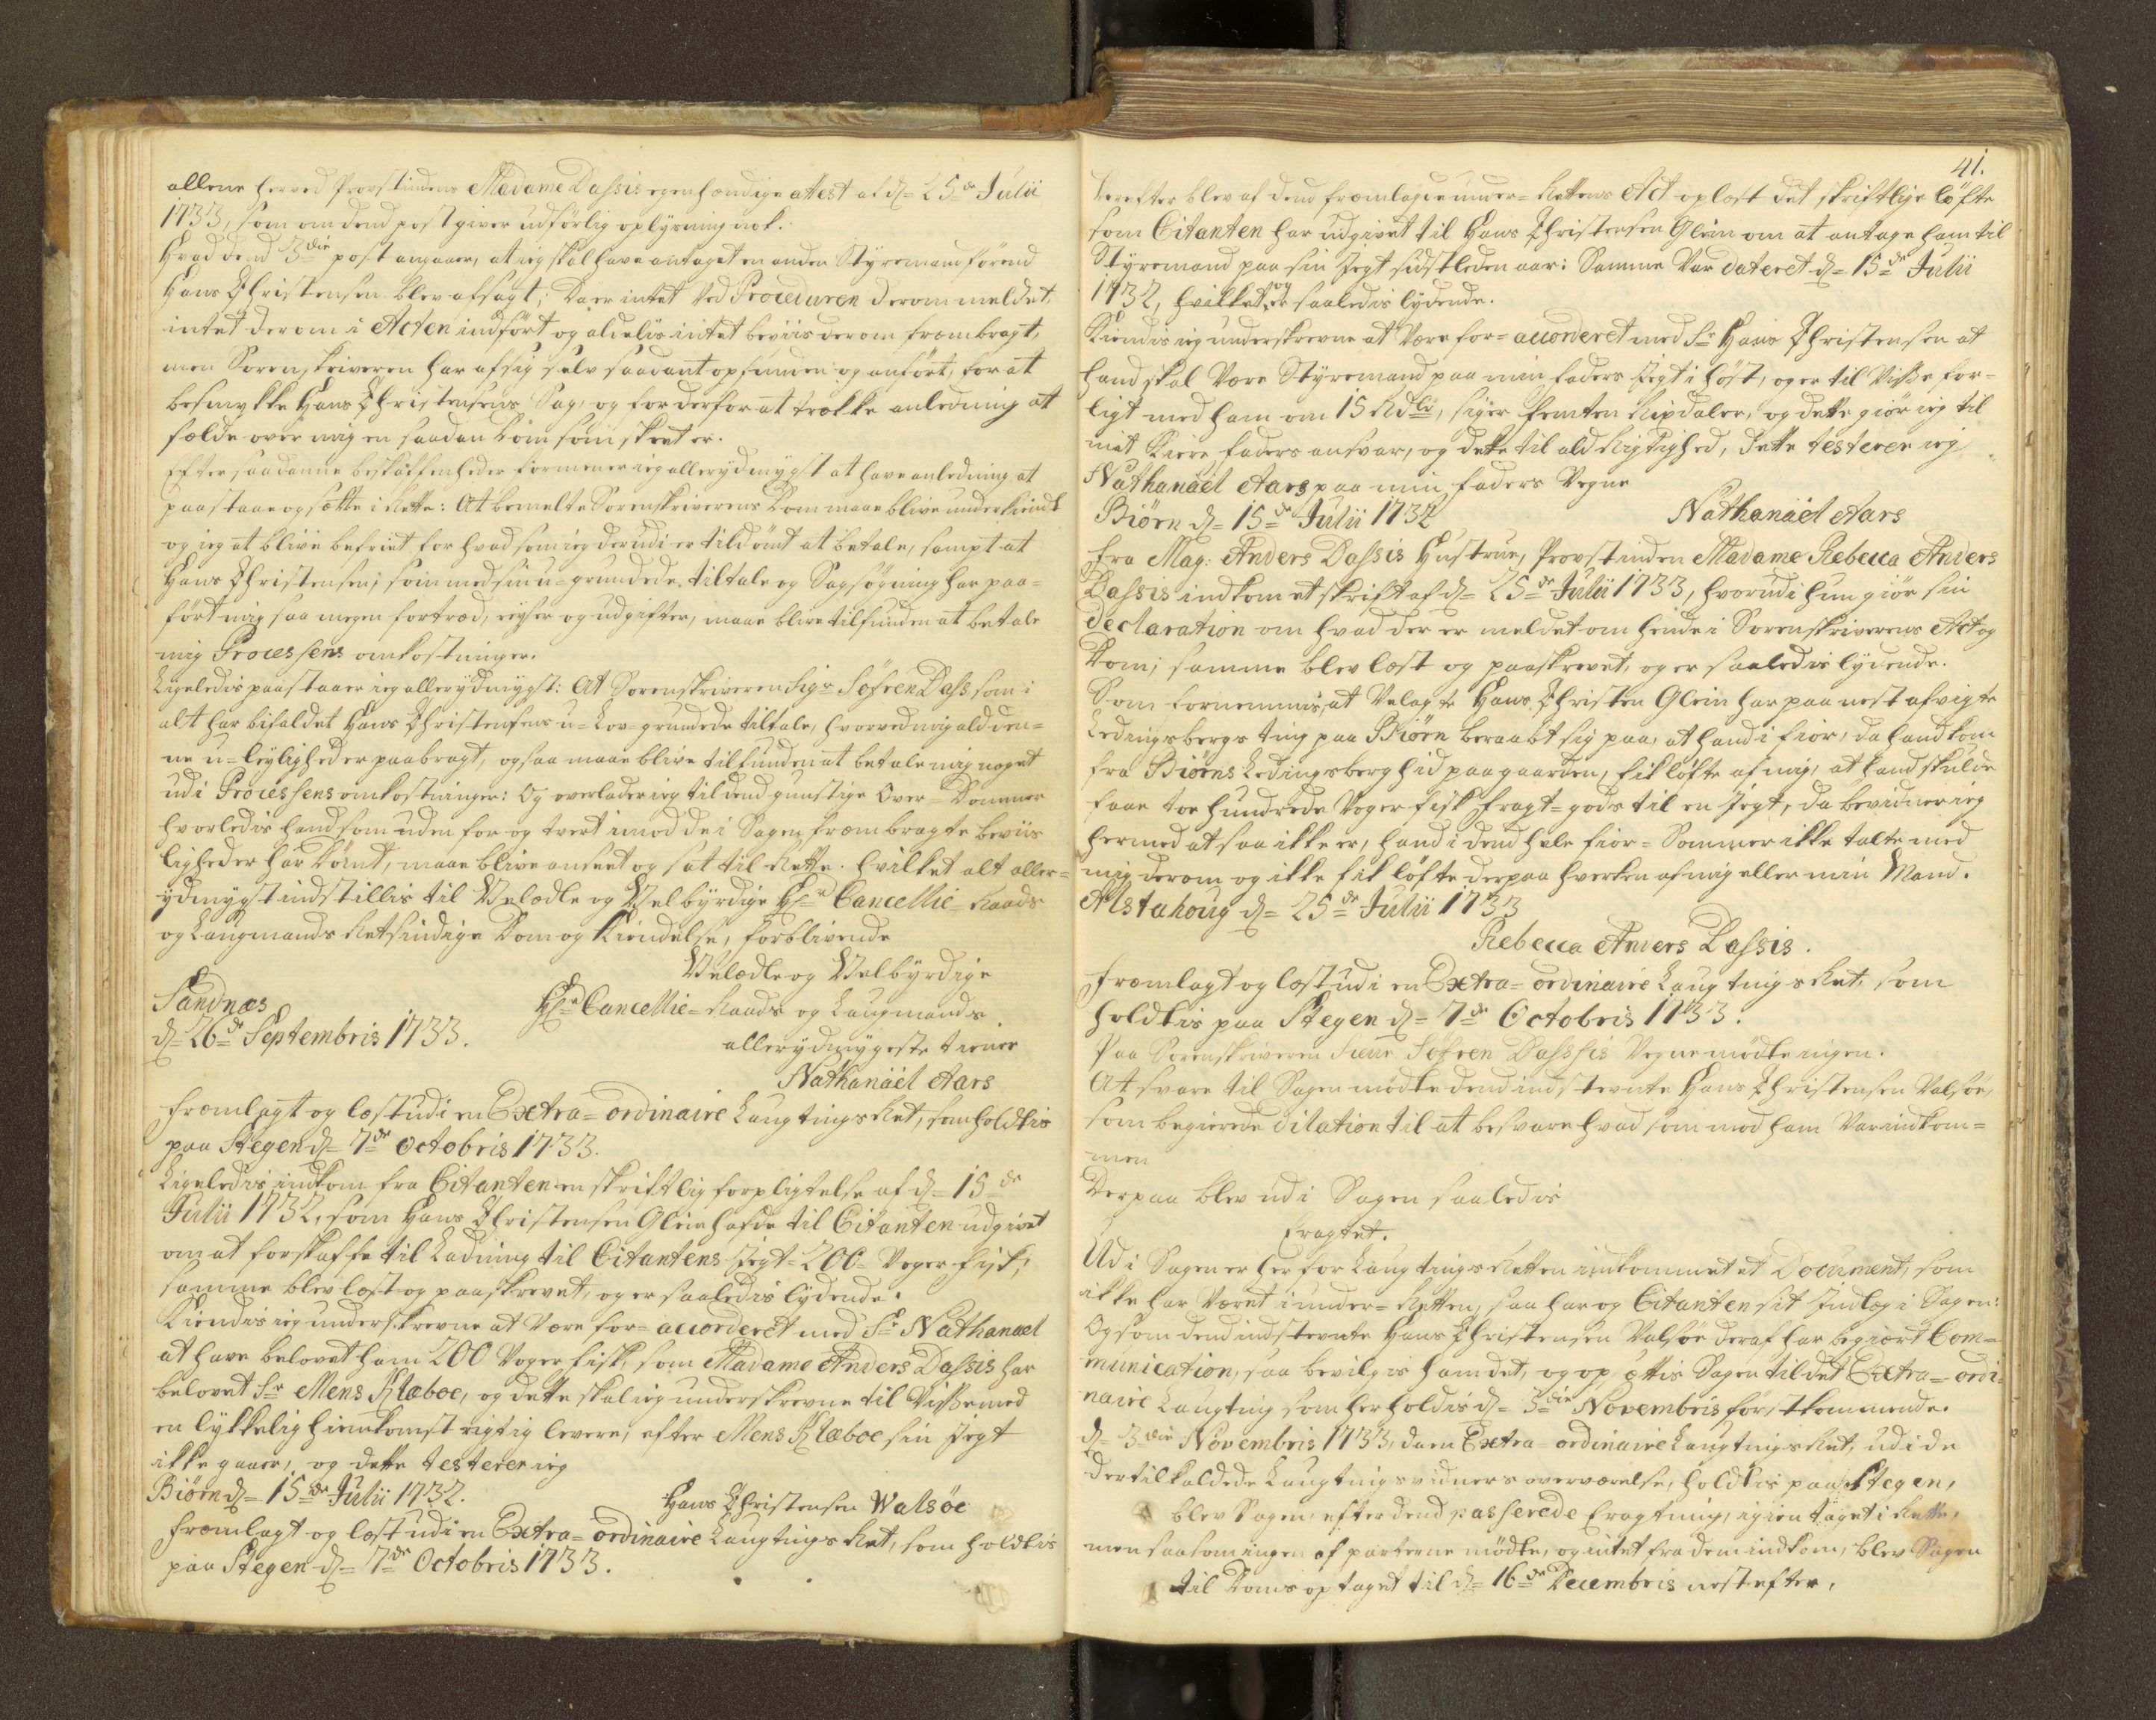 allene herved Provstindens Madame Dassis egenhændige attest af d= 25de Julii
1733, som om dend post giver udførlig oplysning nok.
Hvad dend 3die post angaaer, at ieg skal have antaget en anden Styremand førend
Hans Christensen blev afsagt; Da er intet ved Proceduren derom meldet,
intet derom i Acten indført og aldelis intet beviis derom frembragt,
men Sorenskriveren har af sig self saadant opfunden og anført, for at
besmykke Hans Christensens Sag, og for derfor at trække anledning at
fælde over mig en saadan Dom som skeet er.
Efter saadanne beskaffenheder formener ieg allerydmygst at have anledning at
paastaae og sætte i Rette: At bemelte Sorenskriverens Dom maae blive underkiendt
og ieg at blive befriet for hvad som ieg derudi er tildømt at betale, sampt at
Hans Christensen, som med sin u=grundede tiltale og Sagsøgning har paa=
ført mig saa megen fortræd, reyser og udgifter, maae blive tilfunden at betale
mig Processens omkostninger.
Ligeledis paastaaer ieg allerydmygst: At Sorenskriveren Sigr Søfren Dass, som i
alt har bifaldet Hans Christensens u=Lov=grundede tiltale, hvorved mig ald den=
ne u=leyligheder paabragt, ogsaa maae blive tilfunden at betale mig noget
udi Processens omkostninger: Og overlader ieg til dend gunstige Over=Dommer
hvorledis hand som uden for og tvert imod de i Sagen frembragte beviis
ligheder har Dømt, maae blive anseet og sat til Rette. Hvilket alt aller=
ydmygst indstillis til Velædle og Velbyrdige Hr Cancellie=Raads
og Laugmands Retsindige Dom og Kiendelse, forblivende
Velædle og Velbyrdige
Sandnæs Hr Cancellie=Raads og Laugmands
d= 26de Septembris 1733. allerydmygeste tiener
Nathanäel Aars
Fremlagt og læst udi en Extra=ordinaire Laugtings Ret, som holdtis
paa Stegen d= 7de Octobris 1733.
Ligeledis indkom fra Citanten en skriftlig forpligtelse af d= 15de
Julii 1732, som Hans Christensen Glein hafde til Citanten udgivet
om at forskaffe til Ladning til Citantens Jegt=200=Voger fisk,
samme blev læst og paaskrevet, og er saaledis lydende.
Kiendis ieg underskrevne at være for=accorderet med Sr Nathanael
at have belovet ham 200 Voger fisk, som Madame Anders Dassis har
belovet Sr Mens Klæboe, og dette skal ieg underskrevne til Visse med
en lykkelig hiemkomst rigtig levere, efter Mens Klæboe sin Jegt
ikke gaaer, og dette testerer ieg
Biörn d= 15de Julii 1732. Hans Christensen Walsöe
Fremlagt og læst udi en Extra=ordinaire Laugtings Ret, som holdtis
paa Stegen d= 7de Octobris 1733.
41.
Derefter blev af dend fremlagde under=Rettens Act oplæst det skriftlige løfte
som Citanten har udgivet til Hans Christensen Glein om at antage ham til
Styremand paa sin Jegt sidstleden aar: Samme var dateret d= 15de Julii
1732, hvilket og er saaledis lydende.
Kiendis ieg underskrevne at være for=accorderet med Sr Hans Christensen at
hand skal være Styremand paa min faders Jegt i høst, og er til Visse for=
ligt med ham om 15 Rdlr, siger femten Rixdaler, og dette giør ieg til
mit Kiere faders ansvar, og dette til ald Rigtighed, Dette testerer ieg
Nathanäel Aars paa min faders Vegne
Biörn d= 15de Julii 1732 Nathanäel Aars
Fra Mag: Anders Dassis Hustrue, Provstinden Madame Rebecca Anders
Dassis indkom et skrift af d= 25de Julii 1733, hvorudi hun giør sin
declaration om hvad der er meldet om hende i Sorenskriverens Act og
Dom; samme blev læst og paaskrevet, og er saaledis lydende.
Som fornemmis, at Velagte Hans Christen Glein har paa nest afvigte
Ledingsbergs ting paa Biörn beraabt sig paa, at hand i fior, da hand kom
fra Biörns Ledingsberg hid paa gaarden, fik løfte af mig, at hand skulde
faae toe hundrede Voger fisk fragt=gods til en Jegt, da bevidner ieg
hermed at saa ikke er, hand i dend hele fior=Sommer ikke talte med
mig derom og ikke fik løfte derpaa hverken af mig eller min Mand.
Alstahoug d= 25de Julii 1733
Rebecca Anders Dassis.
Fremlagt og læst udi en Extra=ordinaire Laugtings Ret, som
holdtis paa Stegen d= 7de Octobris 1733.
Paa Sorenskriveren Sieur Søfren Dassis Vegne mødte ingen.
At svare til Sagen mødte dend indstevnte Hans Christensen Valsøe,
som begierede dilation til at besvare hvad som mod ham var indkom=
men
Derpaa blev udi Sagen saaledis
Eragtet.
Udi Sagen er her for Laugtings Retten indkommet et Document, som
ikke har været i under=Retten, saa har og Citanten sit Indlæg i Sagen:
Og som dend indstevnte Hans Christensen Valsøe deraf har begiært Com=
munication, saa bevilgis ham det, og opsættis Sagen til det Extra=ordi=
naire Laugting som her holdis d= 3die Novembris førstkommende.
d= 3die Novembris 1733, da en Extra=ordinaire Laugtings Ret, udi de
dertil kaldede Laugtings vidners overværelse, holdtis paa Stegen,
blev Sagen, efter dend passerede Eragtning, igien taget i Rette,
men saasom ingen af parterne mødte, og intet fra dem indkom, blev Sagen
til Doms optaget til d= 16de Decembris nestefter,